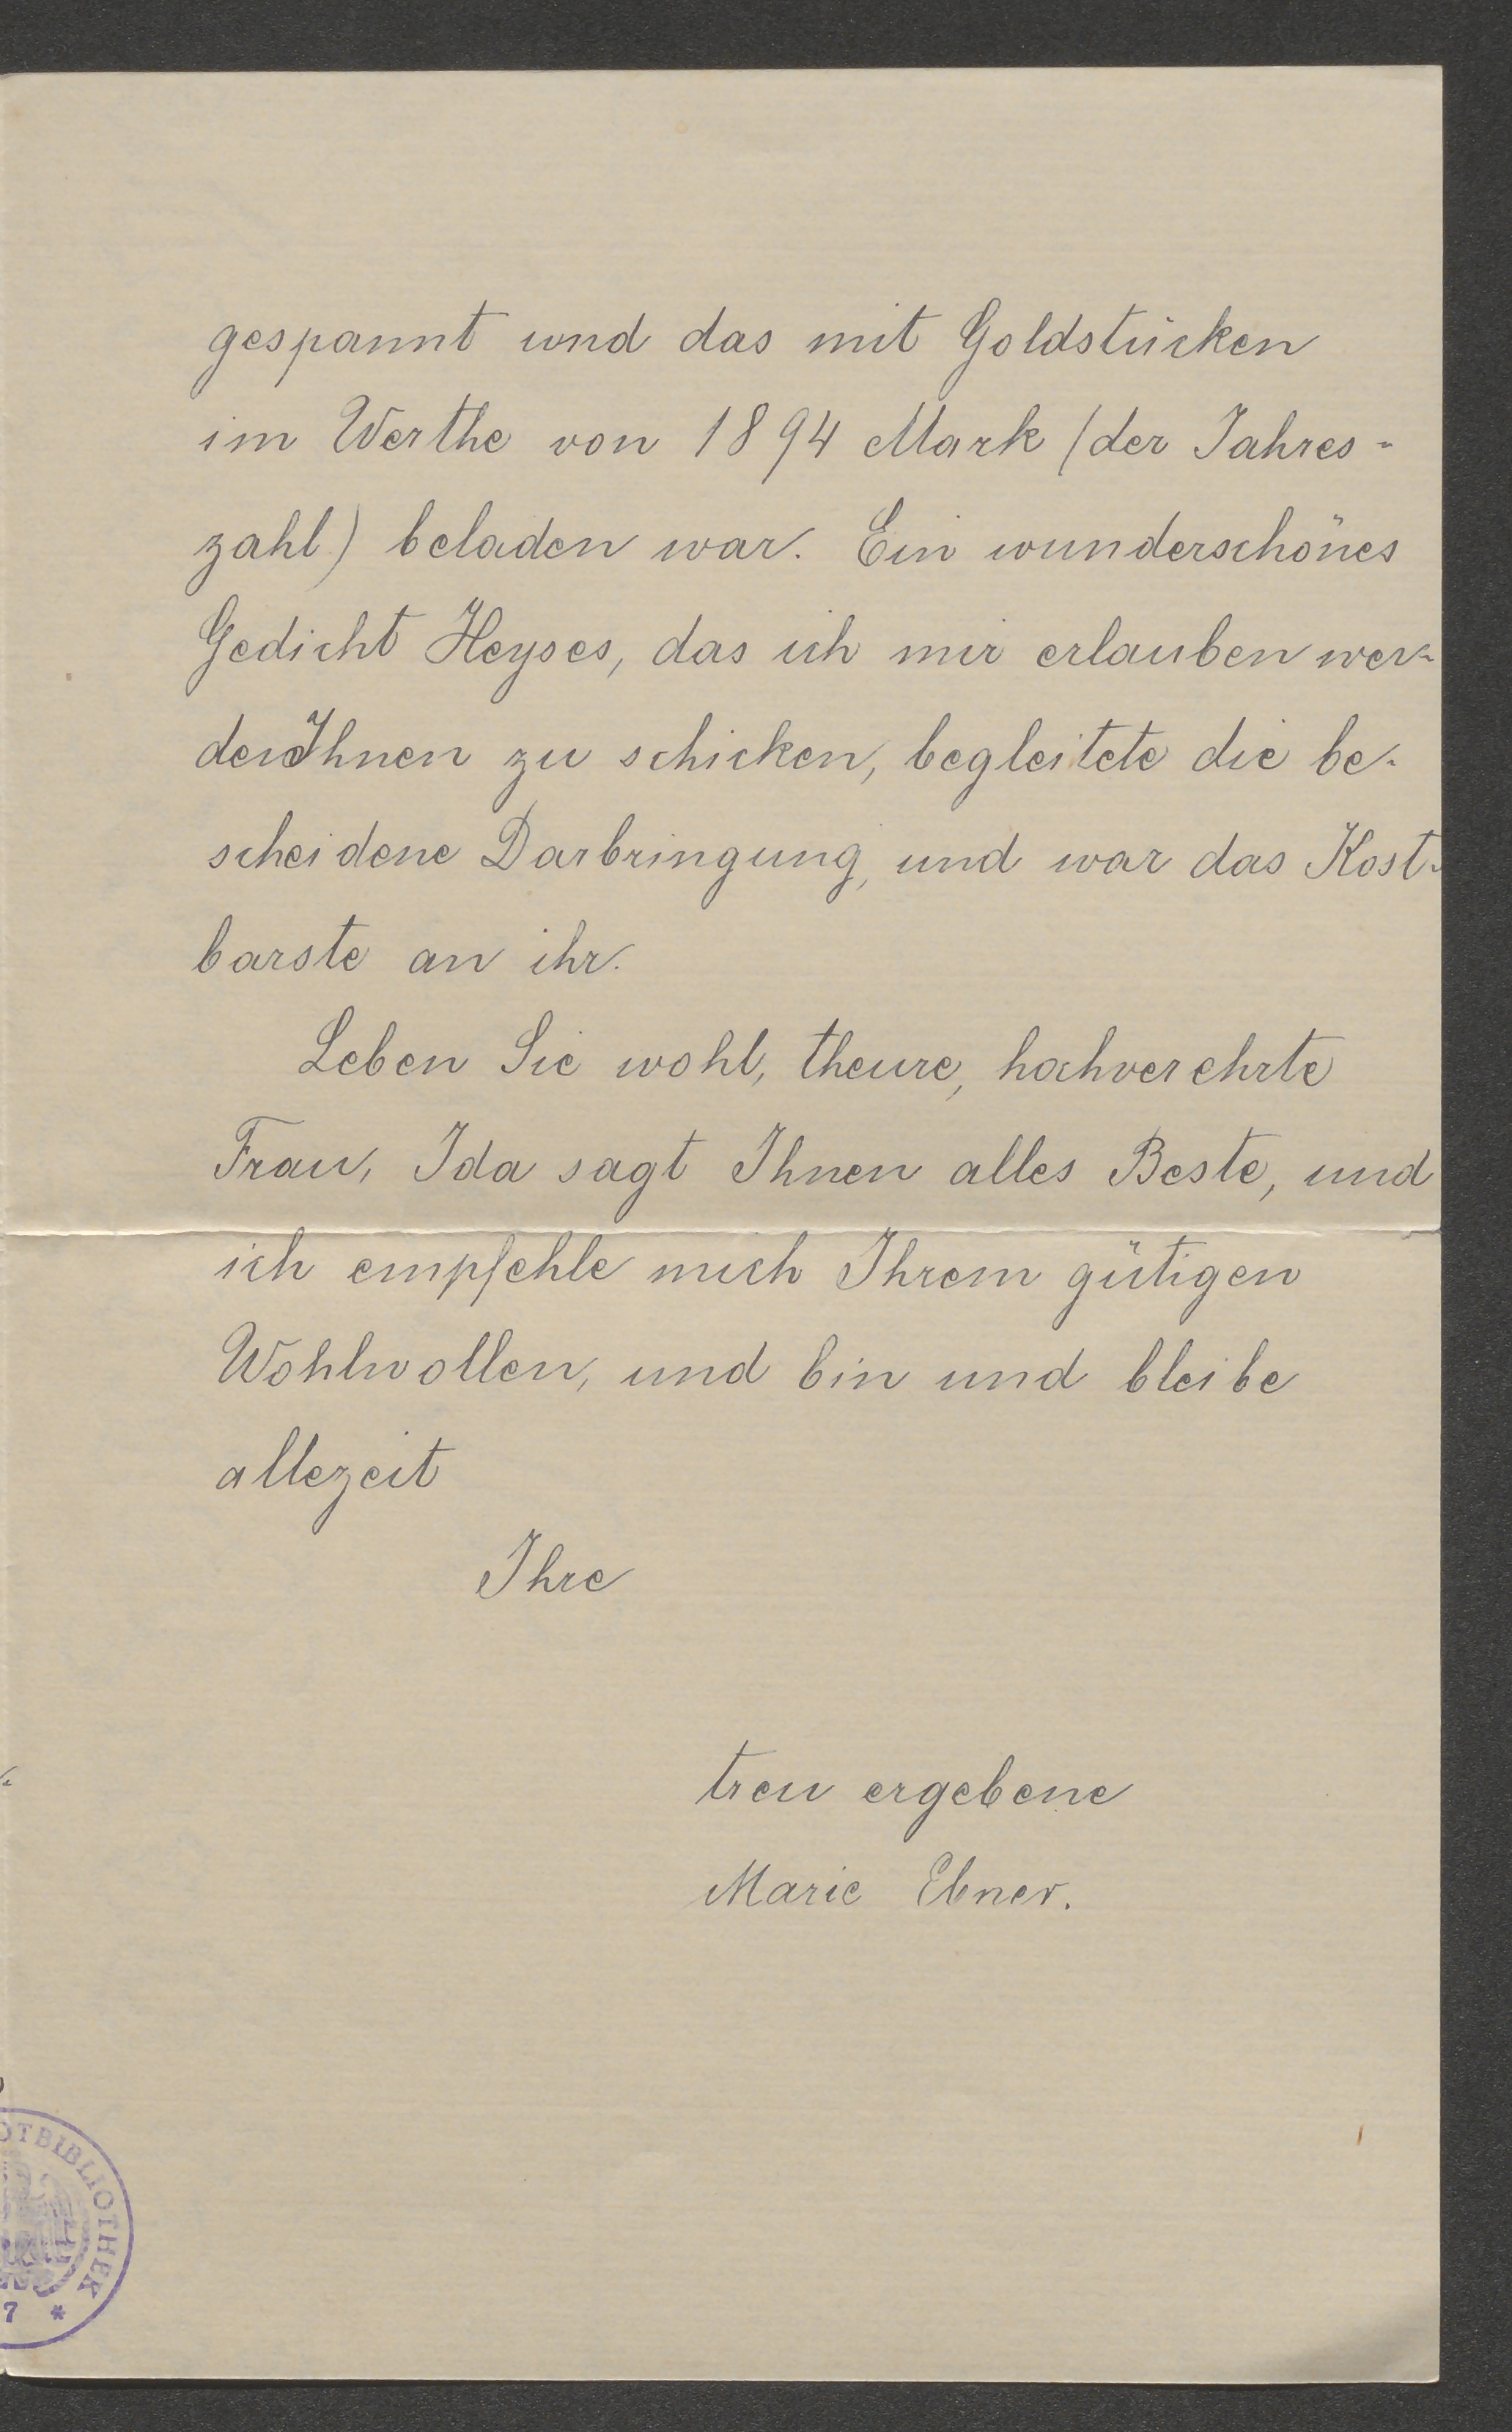 gespannt und das mit Goldstücken
im Werthe von 1894 Mark (der Jahres-
zahl) beladen war. Ein wunderschönes
Gedicht Heyses, das ich mir erlauben wer-
de Ihnen zu schicken, begleitete die be-
scheidene Darbringung, und war das Kost-
barste an ihr.
Leben Sie wohl, theure, hochverehrte
Frau, Ida sagt Ihnen alles Beste, und
ich empfehle mich Ihrem gütigen
Wohlwollen, und bin und bleibe
allezeit
Ihre
treu ergebene
Marie Ebner.
OTBIBLIOTHEK
7 *